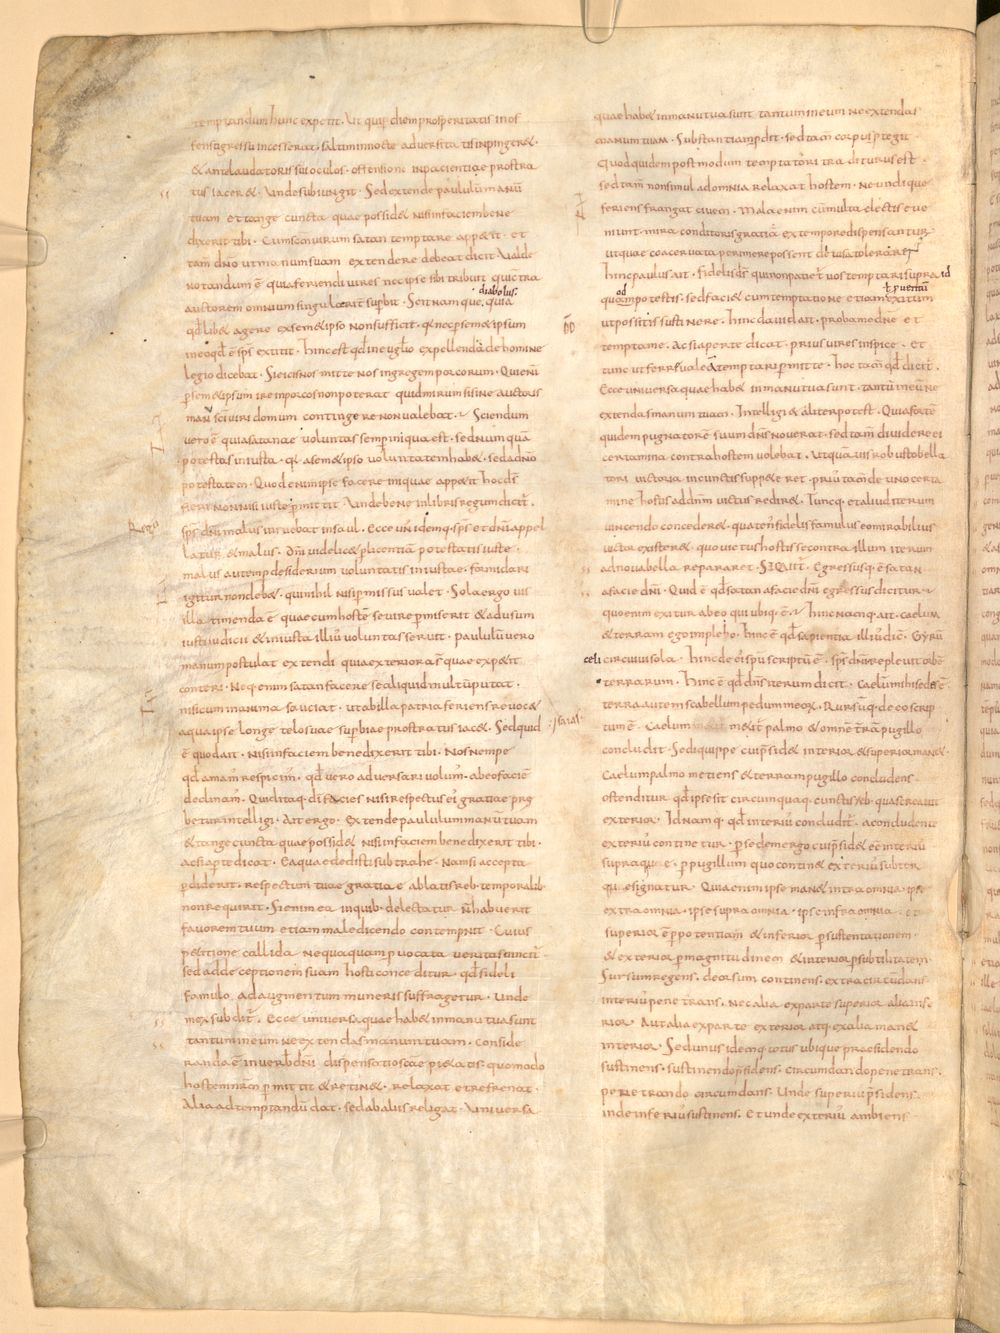 temptandum hunc expetit. Ut quis diem prosperitatis in of
fensus gressu incesserat. saltim in nocte adversitatis inpingere&.
& ante laudatoris sui oculos. offensione inpacientiae prostra
tus iacer&. Unde subiungit. Sed extende paululum manū
tuam et tange cuncta quae possid& nisi in faciem bene
dixerit tibi. Cum scm virum satan temptare app&it. et
tam dno ut manum suam extendere debeat dicit. Valde
notandum ē quia feriendi vires nec ipse sibi tribuit qui contra
diabolus.
auctorem omnium singulariter superbit. Scit namque. quia
qd lib& agere ex sem&ipso non sufficit. q nec p sem&ipsum
in eo qd ē sps extitit. hinc est qd in evglio expellenda de homine
legio dicebat. Si eicis nos mitte nos in gregem porcorum. Qui eni
p sem&ipsum ire in porcos non poterat quid mirum si sine auctoris
manu sci viri domum contingere non valebat. Sciendum
vero ē quia satanae voluntas semp iniqua est. sed numquā
potestas iniusta. q a sem&ipso voluntatem hab&. sed a dno
potestatem. Quod enim ipse facere inique app&it hoc ds
fieri non nisi iuste pmittit. Unde bene in libris regum dicit.
Regū
sps dni malus inruebat in saul. Ecce un idemq. sps et dni appel
latur & malus. dni videlic& p licentiā potestatis iustę.
malus autem p desiderium voluntatis iniustae. formidari
igitur non deb&. qui nihil nisi pmissus valet. Sola ergo vis
illa timenda ē quae cum hostē sevire pmiserit & ad usum
iusti iudicii & iniusta illius voluntas servit. paululū vero
manum postulat extendi quia exteriora s quae exp&it
conteri. Neq. enim satan facere se aliquid multū putat.
nisi cum in anima sauciat. ut ab illa patria feriens revoc&
a qua ipse longe telo suae superbiae prostratus iac&. Sed quid
ē quod ait. nisi in faciem benedixerit tibi. Nos nempe
qd amam respicim. qd vero adversari volum. ab eo faciē
declinam. Quid itaq. di facies nisi respectus ei gratiae pre
betur intelligi. Ait ergo. Extende paululum manū tuam
& tange cuncta quae possid& nisi in faciem benedixerit tibi.
ac si apte dicat. Ea quae dedisti subtrahe. Nam si accepta
pdiderit. respectum tuae gratiae ablatis reb. temporalib.
non requirit. Si enim ea in quib. delectatur n habuerit
favorem tuum etiam maledicendo contempnit. Cuius
p&itione callida nequaquam pvocata veritas vincit.
sed ad deceptionem suam hosti conceditur. qd fideli
famulo ad augmentum muneris suffragetur. Unde
mox subdit. Ecce universa quae hab& in manu tua sunt
tantum in eum ne extendas manum tuam. Conside
randa ē in verb. dni dispensatio scae pi&atis. quomodo
hostem nrm pmittit & retin&. relaxat et refrenat.
Alia ad temptandū dat. sed ab aliis religat. Universa
quae hab& in manu tua sunt tantum in eum ne extendas
manum tuam. Substantiam pdit. sed tam corpus ptegit
Quod quidem postmodum temptatori traditurus est.
sed tam non simul ad omnia relaxat hostem. ne undique
feriens frangat civem. Mala enim cū multa electis eve
niunt. mira conditoris gratiā ex tempore dispensantur.
ut quae coacervata perimere possent divisa tolerarent.
hinc paulus ait. fidelis ds qui non patiet vos temptari supra id
quod potestis. sed faci& cum temptatione etiam exitum
ut possitis sustinere. hinc david ait. proba me dne et
tempta me. Ac si aperte dicat. prius vires inspice. et
tunc ut ferre valeā temptari pmitte. hoc tam qd dicit.
Ecce universa quae hab& in manu tua sunt. tantū in eum ne
extendas manum tuam. Intelligi & aliter potest. Quia fortē
quidem pugnatorē suum dns noverat. sed tam dividere ei
certamina contra hostem volebat. Ut quamvis robusto bella
tori victoria in cunctis suppeteret. prius tam de uno certa
mine hostis ad dnm victus redir&. Tuncq. & aliud iterum
vincendo conceder&. quaten fidelis famulus eo mirabilius
victor exister&. quo victus hostis se contra illum iterum
ad nova bella repararet. SEQUIT. Egressusq. ē satan
a facie dni. Quid ē qd satan a facie dni egressus dicitur.
quo enim exitur ab eo qui ubiq. ē. Hinc namq. ait. Caelum
& terram ego impleo. hinc ē qd sapientia illius dic. Gyrū
celi circuivi sola. hinc de ei spu scriptū ē. sps dni replevit orbē
terrarum. hinc ē qd dns iterum dicit. Caelum mihi sedes ē
terra autem scabellum pedum meor. Rursusq. de eo scrip
tum ē. Caelum m&it palmo & omnē trā pugillo
concludit. Sedi quippe cui psid& interior & superior man&.
Caelum palmo metiens & terram pugillo concludens
ostenditur qd ipse sit circumquaq. cunctis reb. quas creavit
exterior. Id namq. qd interius concludit. a concludente
exterius continetur. p sede m ergo cui psid& eē interius
supraque. p pugillum quo contin& exterius subter
que signatur. Quia enim ipse man& intra omnia. ipse
extra omnia. ipse supra omnia. ipse infra omnia. et
superior ē p potentiam & inferior p sustentationem.
& exterior p magnitudinem & interior p subtilitatem.
Sursum regens. deorsum continens. extra circūdans.
interius penetrans. nec alia ex parte superior alia infe
rior. Aut alia ex parte exterior atq. ex alia man&
interior. Sed unus idemq. totus ubique praesidendo
sustinens. sustinendo psidens. circumdando penetrans.
penetrando circumdans. Unde superius psidens.
inde inferius sustinens. Et unde exterius ambiens